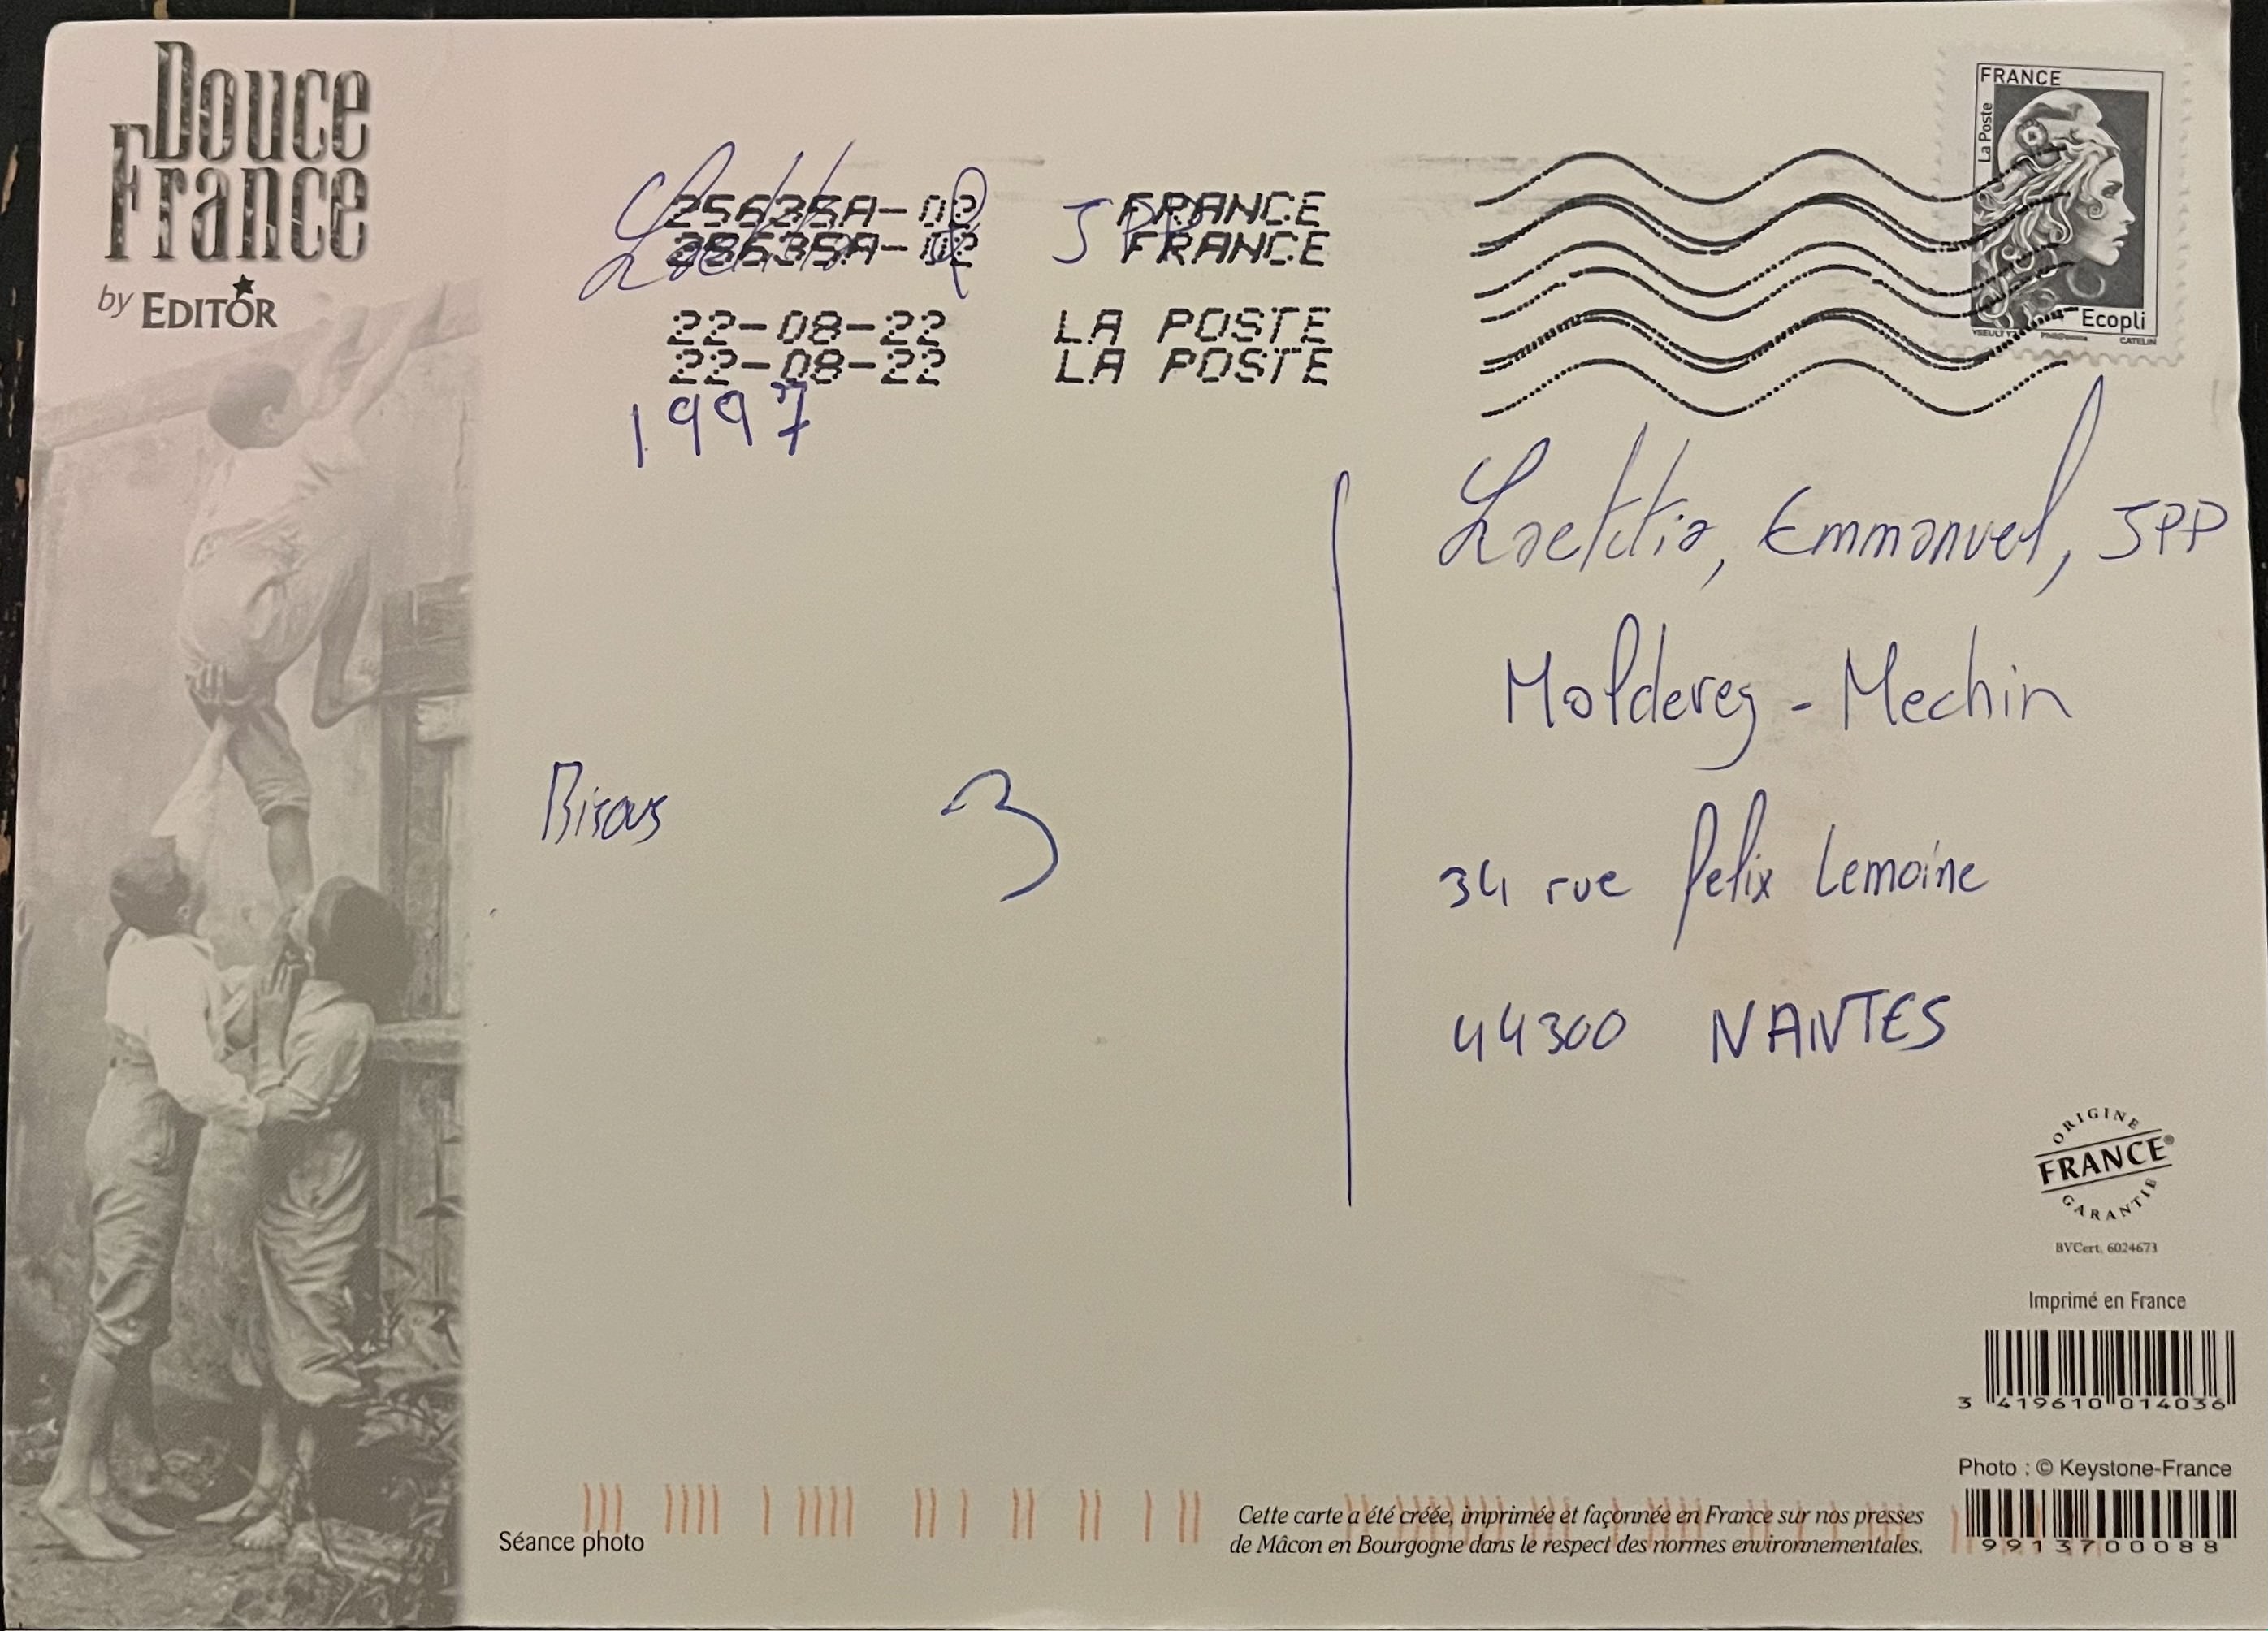 Douce
France
by EDITOR
25635A-02 FRANCE
25635A-02 FRANCE
22-08-22 LA POSTE
22-08-22 LA POSTE
1997
Bisous 3
FRANCE
La Poste
Ecopli
YSEULT YZ
CATELIN
Laetitia, Emmanuel, JPP
Molderez - Mechin
34 rue felix Lemoine
44300 NANTES
ORIGINE
FRANCE®
GARANTIE
BVCert. 6024673
Imprimé en France
3 419610 014036
Photo : © Keystone-France
9913700088
Séance photo
Cette carte a été créée, imprimée et façonnée en France sur nos presses
de Mâcon en Bourgogne dans le respect des normes environnementales.